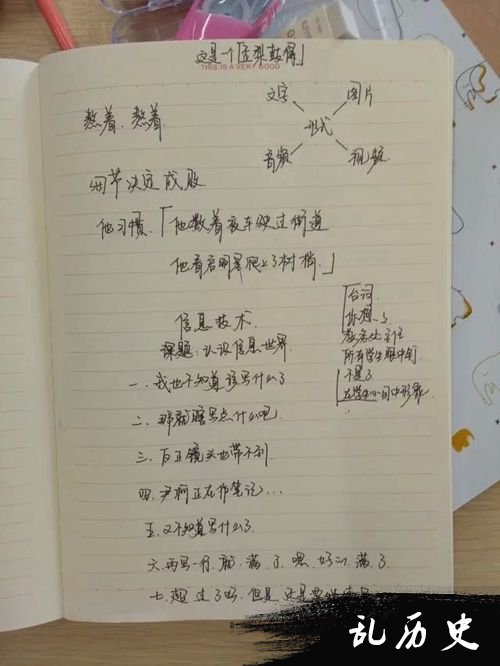 这是一个「歪梨鼓得」
THIS IS A VERY GOOD
文字 图片
形式
音频 视频
熬着、熬着
细节决定成败
他习惯「他数着夜车驶过街道
他看启明星爬上了树梢」
信息技术
课题:认识信息世界
台词
你想
教务处主任
所有学生眼中钉
不是了
在学生心目中形象
一、我也不知道该写什么了
二、那就瞎写点什么吧
三、反正镜头也带不到
四、尹柯正在作笔记...
五、又不知道写什么了
六、再写一行,就,满,了,嗯,好的,满了
七、超过了吗,但是,还是要
乱历史